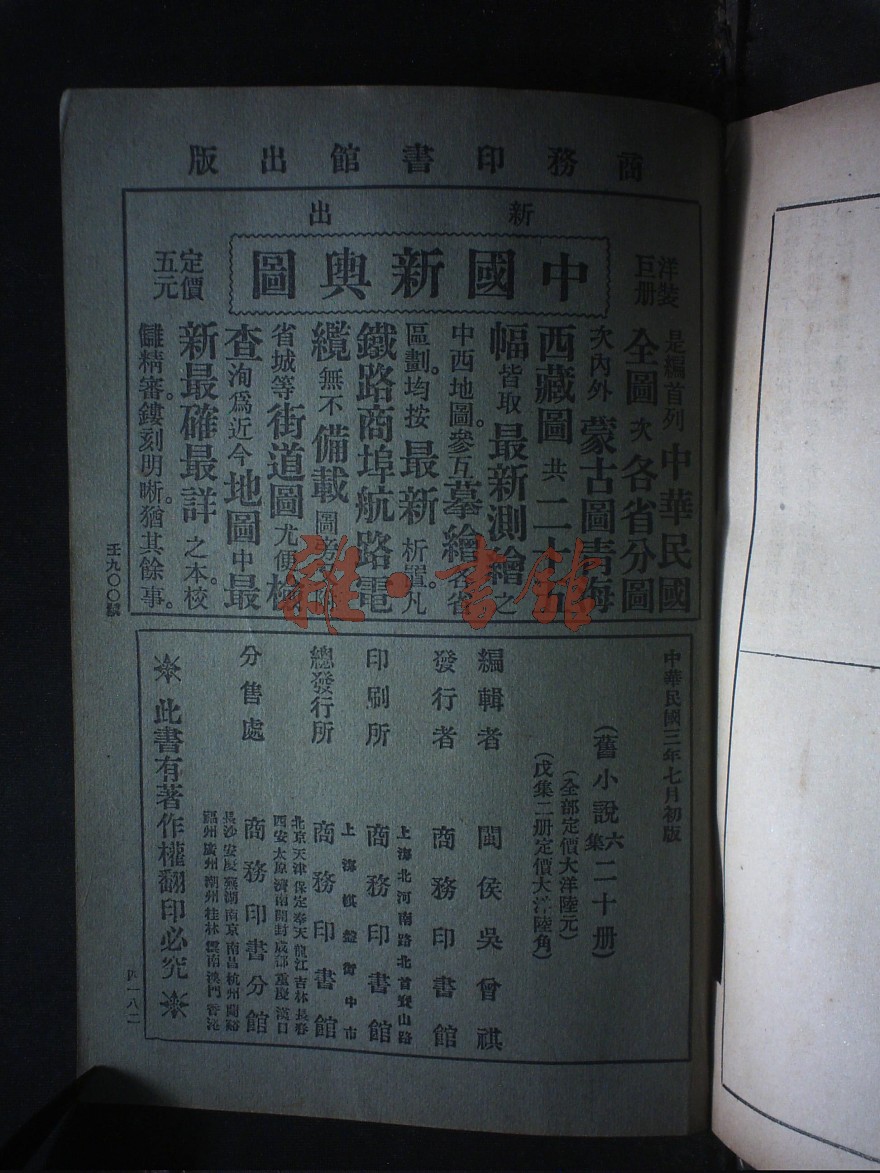 商務印書館出版
新出
洋裝巨册
中國新輿圖
定價五元
是編首列中華民國
全圖次各省分圖
次內外蒙古圖青海
西藏圖共二十五
幅皆取最新測繪之
中西地圖。參互摹繪各省
區劃。均按最新析置。凡
鐵路商埠航路電
纜無不備載圖旁附
省城等街道圖尤便檢
查洵爲近今地圖中最
新最確最詳之本校
讎精審。鏤刻明晰。猶其餘事。
王九〇〇號
中華民國三年七月初版
(舊小說六集二十册)
(全部定價大洋陸元)
(戊集二册定價大洋陸角)
編輯者 閩侯吳曾祺
發行者 商務印書館
上海北河南路北首寶山路
印刷所 商務印書館
上海棋盤街中市
總發行所 商務印書館
北京天津保定奉天龍江吉林長春
西安太原濟南開封成都重慶漢口
分售處 商務印書分館
長沙安慶蕪湖南京南昌杭州蘭谿
福州廣州潮州桂林雲南澳門香港
此書有著作權翻印必究
四一八二
雜·書館